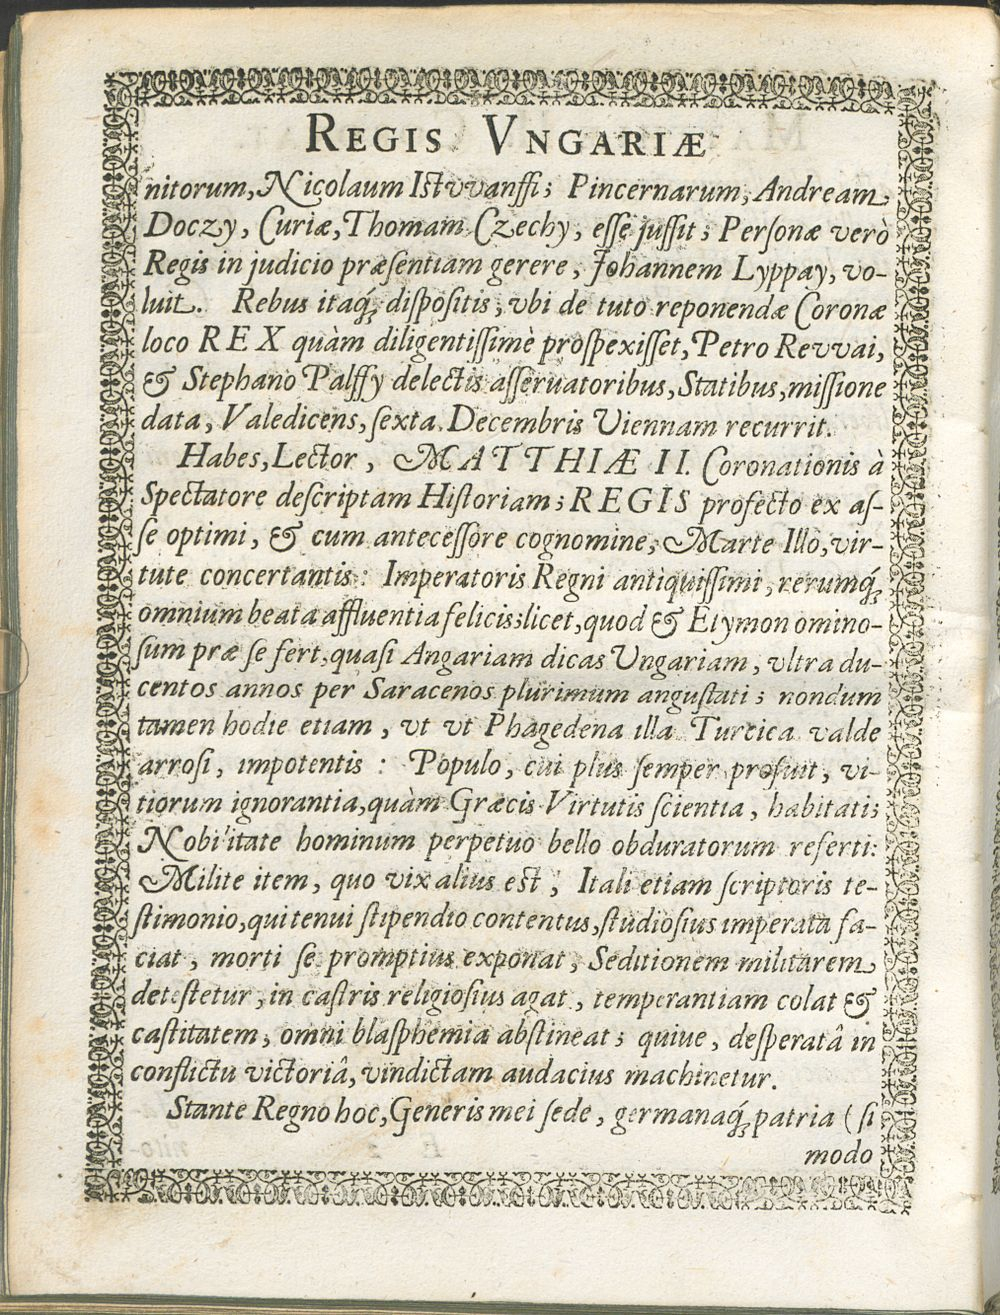 REGIS VNGARIÆ
nitorum, Nicolaum Istvvanffi; Pincernarum, Andream
Doczy, Curiæ, Thomam Czechy, esse jussit; Personæ verò
Regis in judicio præsentiam gerere, Johannem Lyppay, vo-
luit. Rebus itaq́; dispositis, vbi de tuto reponendæ Coronæ
loco REX quàm diligentissimè prospexisset, Petro Revvai,
& Stephano Palffy delectis asseruatoribus, Statibus, missione
data, Valedicens, sexta. Decembris Viennam recurrit.
Habes, Lector, MATTHIÆ II. Coronationis à
Spectatore descriptam Historiam; REGIS profecto ex as-
se optimi, & cum antecessore cognomine, Marte Illo, vir-
tute concertantis: Imperatoris Regni antiquissimi, rerumq́;
omnium beata affluentia felicis; licet, quod & Etymon omino-
sum præ se fert, quasi Angariam dicas Ungariam, vltra du-
centos annos per Saracenos plurimum angustati; nondum
tamen hodie etiam, vt vt Phagedena illa Turcica valde
arrosi, impotentis: Populo, cui plus semper profuit, vi-
tiorum ignorantia, quàm Græcis Virtutis scientia, habitati;
Nobilitate hominum perpetuo bello obduratorum referti:
Milite item, quo vix alius est, Itali etiam scriptoris te-
stimonio, qui tenui stipendio contentus, studiosius imperata fa-
ciat, morti se promptius exponat, Seditionem militarem
detestetur, in castris religiosius agat, temperantiam colat &
castitatem, omni blasphemia abstineat; quiue, desperatâ in
conflictu victoriâ, vindictam audacius machinetur.
Stante Regno hoc, Generis mei sede, germanaq́; patria (si
modo